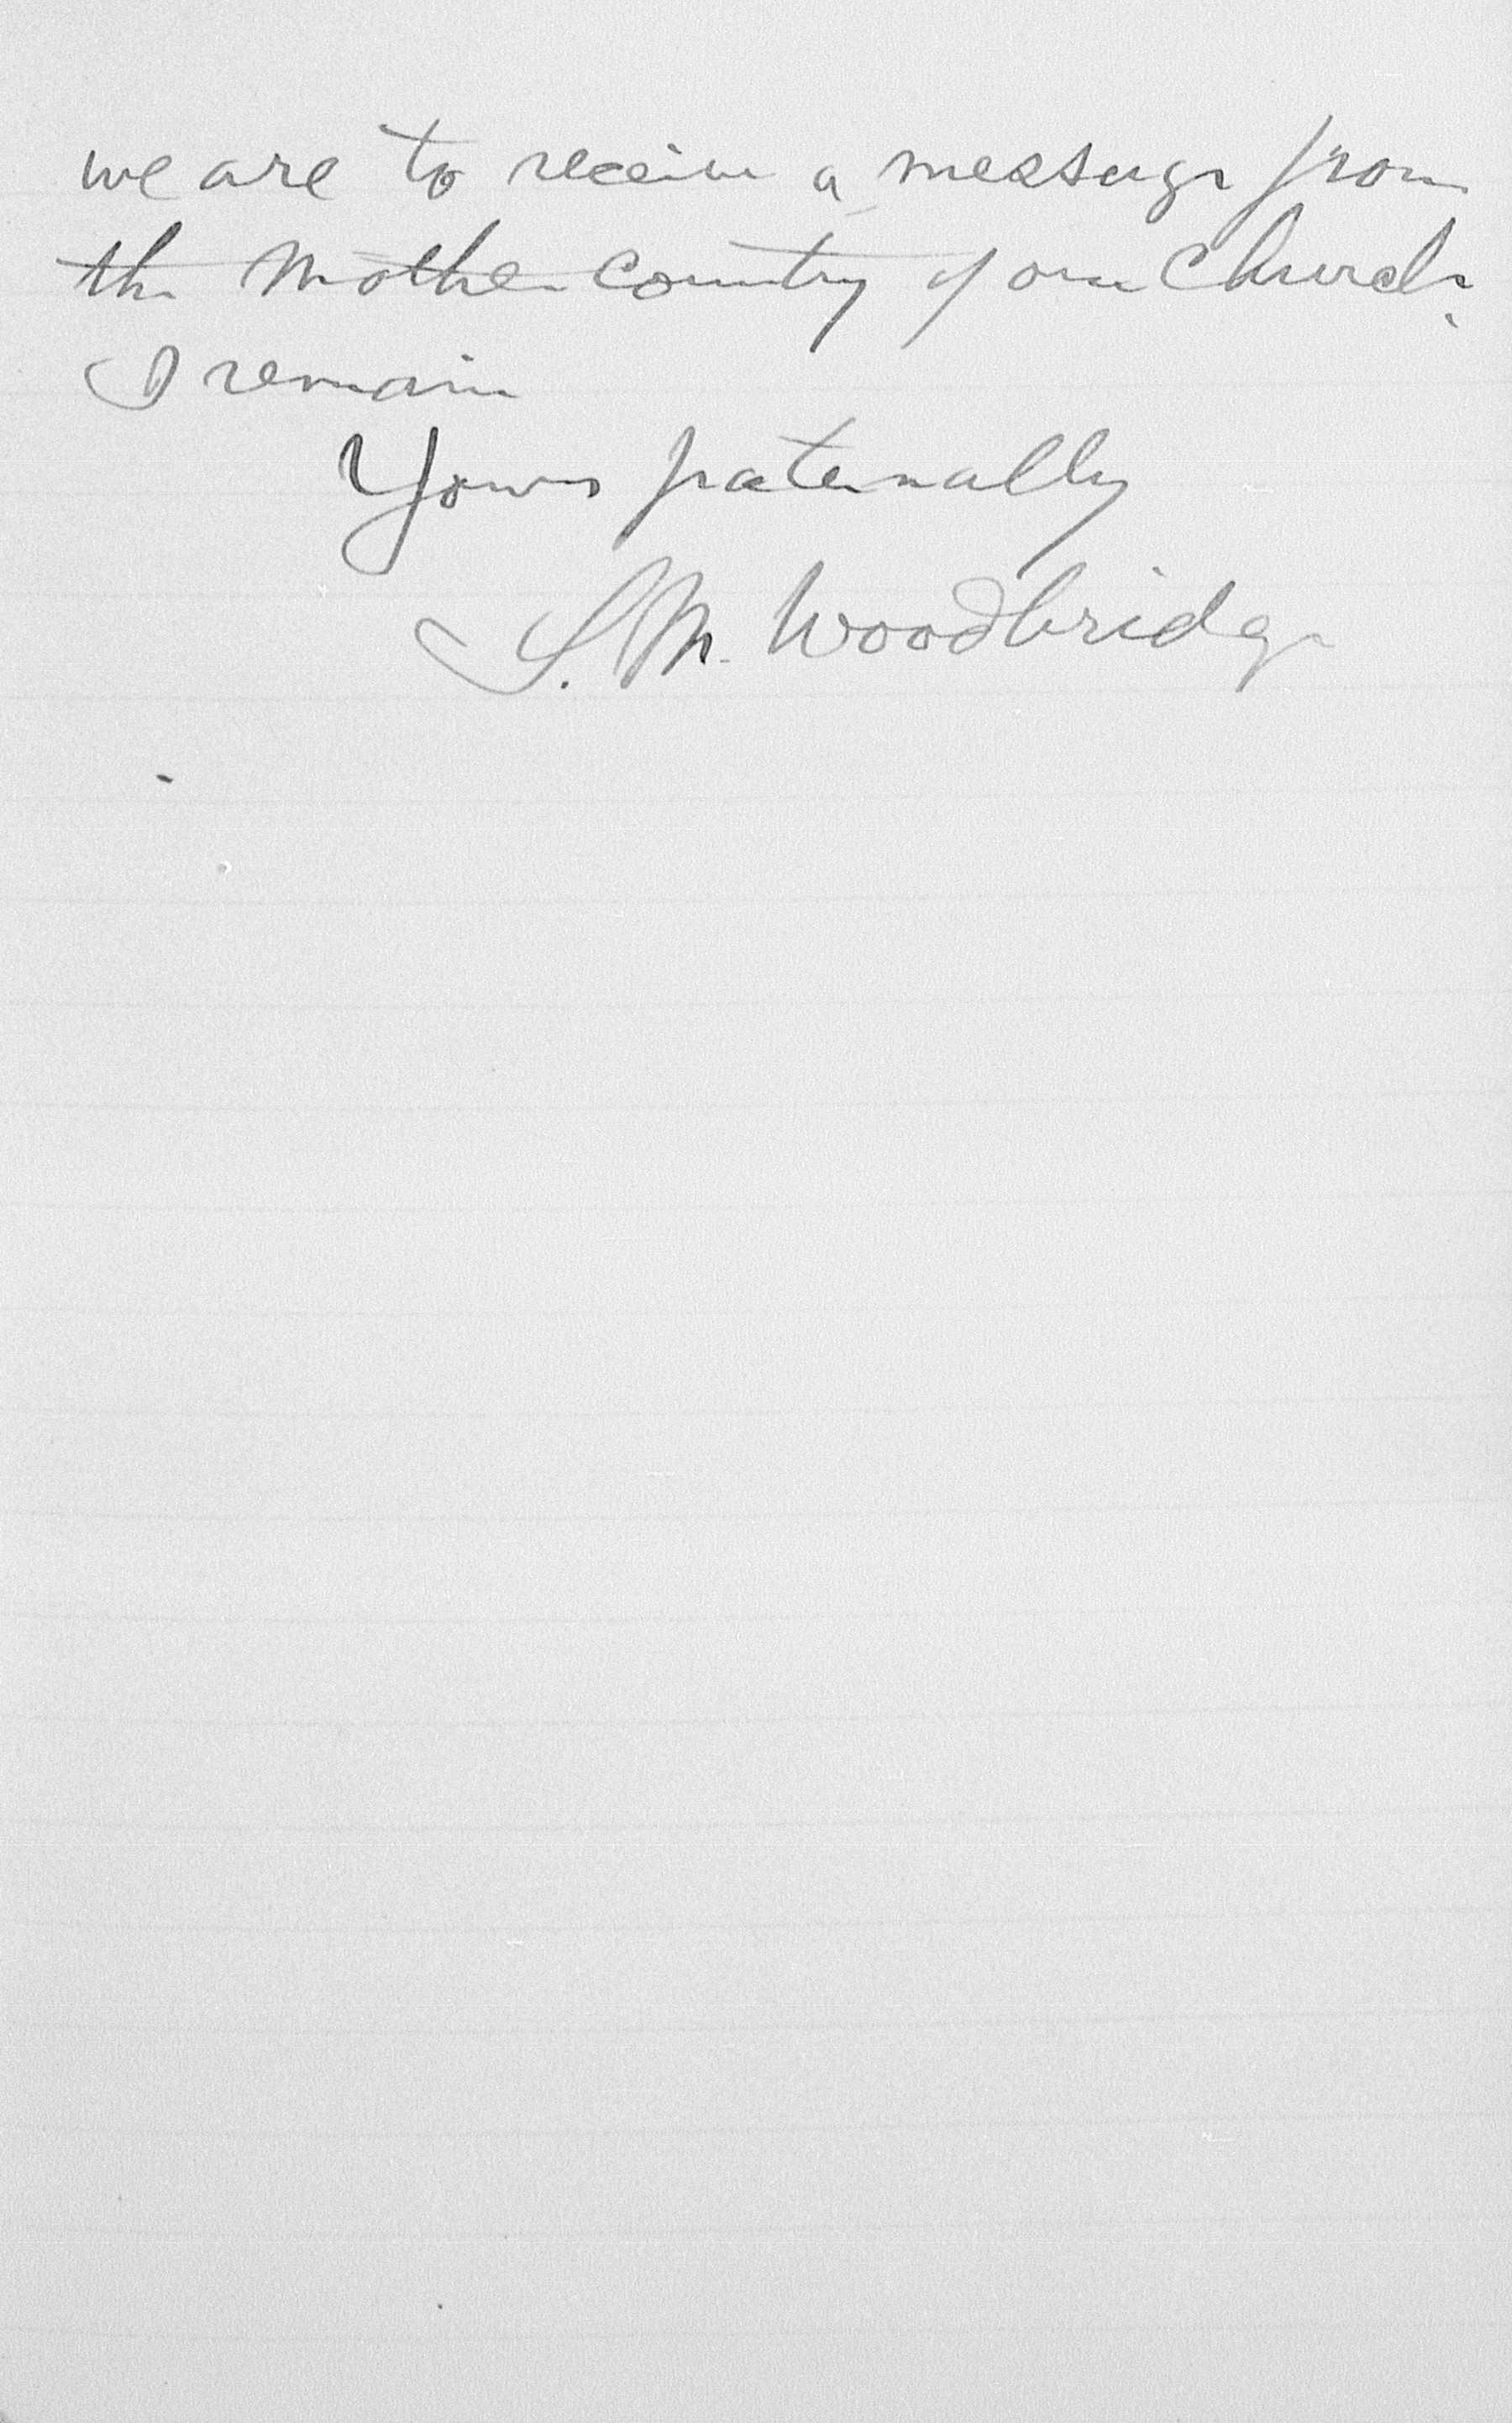 we are to receive a message from
the Mother Country of our Church.
I remain
Yours paternally
S. M. Woodbridge